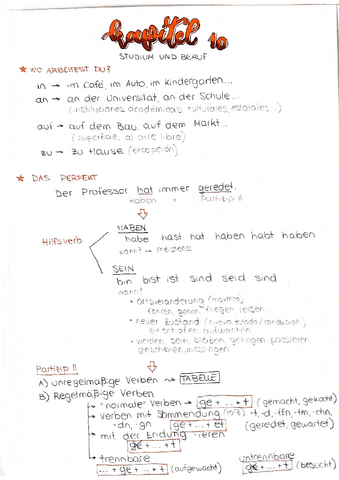 Kapitel 10
STUDIUM UND BERUF
★ WO ARBEITEST DU?
in → im Café, im Auto, im Kindergarten...
an → an der Universität, an der Schule...
(instituciones académicas, culturales, estatales...)
auf → auf dem Bau, auf dem Markt...
(superficie, al aire libre)
zu → zu Hause (excepción)
★ DAS PERFEKT
Der Professor hat immer geredet.
Haben + Partizip II
Hilfsverb
HABEN
habe hast hat haben habt haben
wann? → meistens
SEIN
bin bist ist sind seid sind
wann?
• Ortsveränderung
fahren, gehen, fliegen, reisen
• neuer Zustand (nuevo estado/condición)
einschlafen, aufwachen
• werden, sein, bleiben, gelingen, passieren,
geschehen, misslingen
Partizip II
A) unregelmäßige Verben → TABELLE
B) Regelmäßige Verben
"normale" Verben → ge + ... + t (gemacht, gekocht)
verben mit -t, -d, -ffn, -tm, -chn,
-dn, -gn ge + ... + et (geredet, gewartet)
mit der Endung -ieren
ge + ... + t
trennbare
... + ge + ... + t (aufgewacht)
untrennbare
ge + ... + t (besucht)